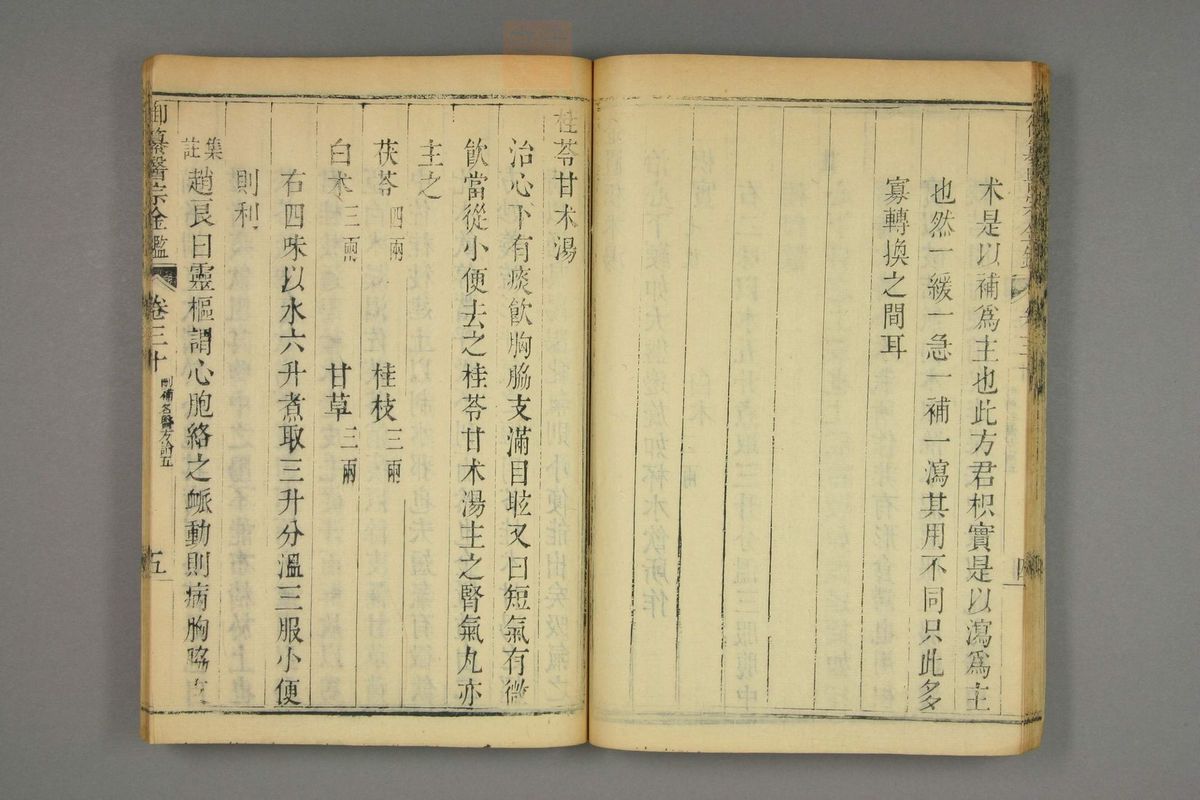 术是以補爲主也此方君枳實是以瀉爲主
也然一緩一急一補一瀉其用不同只此多
寡轉換之間耳
四
桂苓甘术湯
治心下有痰飲胸脇支滿目眩又曰短氣有微
飲當從小便去之桂苓甘术湯主之腎氣丸亦
主之
茯苓四兩 桂枝三兩
白术三兩 甘草二兩
右四味以水六升煮取三升分溫三服小便
則利
集註 趙良曰靈樞謂心胞絡之衇動則病胸脇支
御纂醫宗金鑑 卷三十 刪補名醫方論五 五